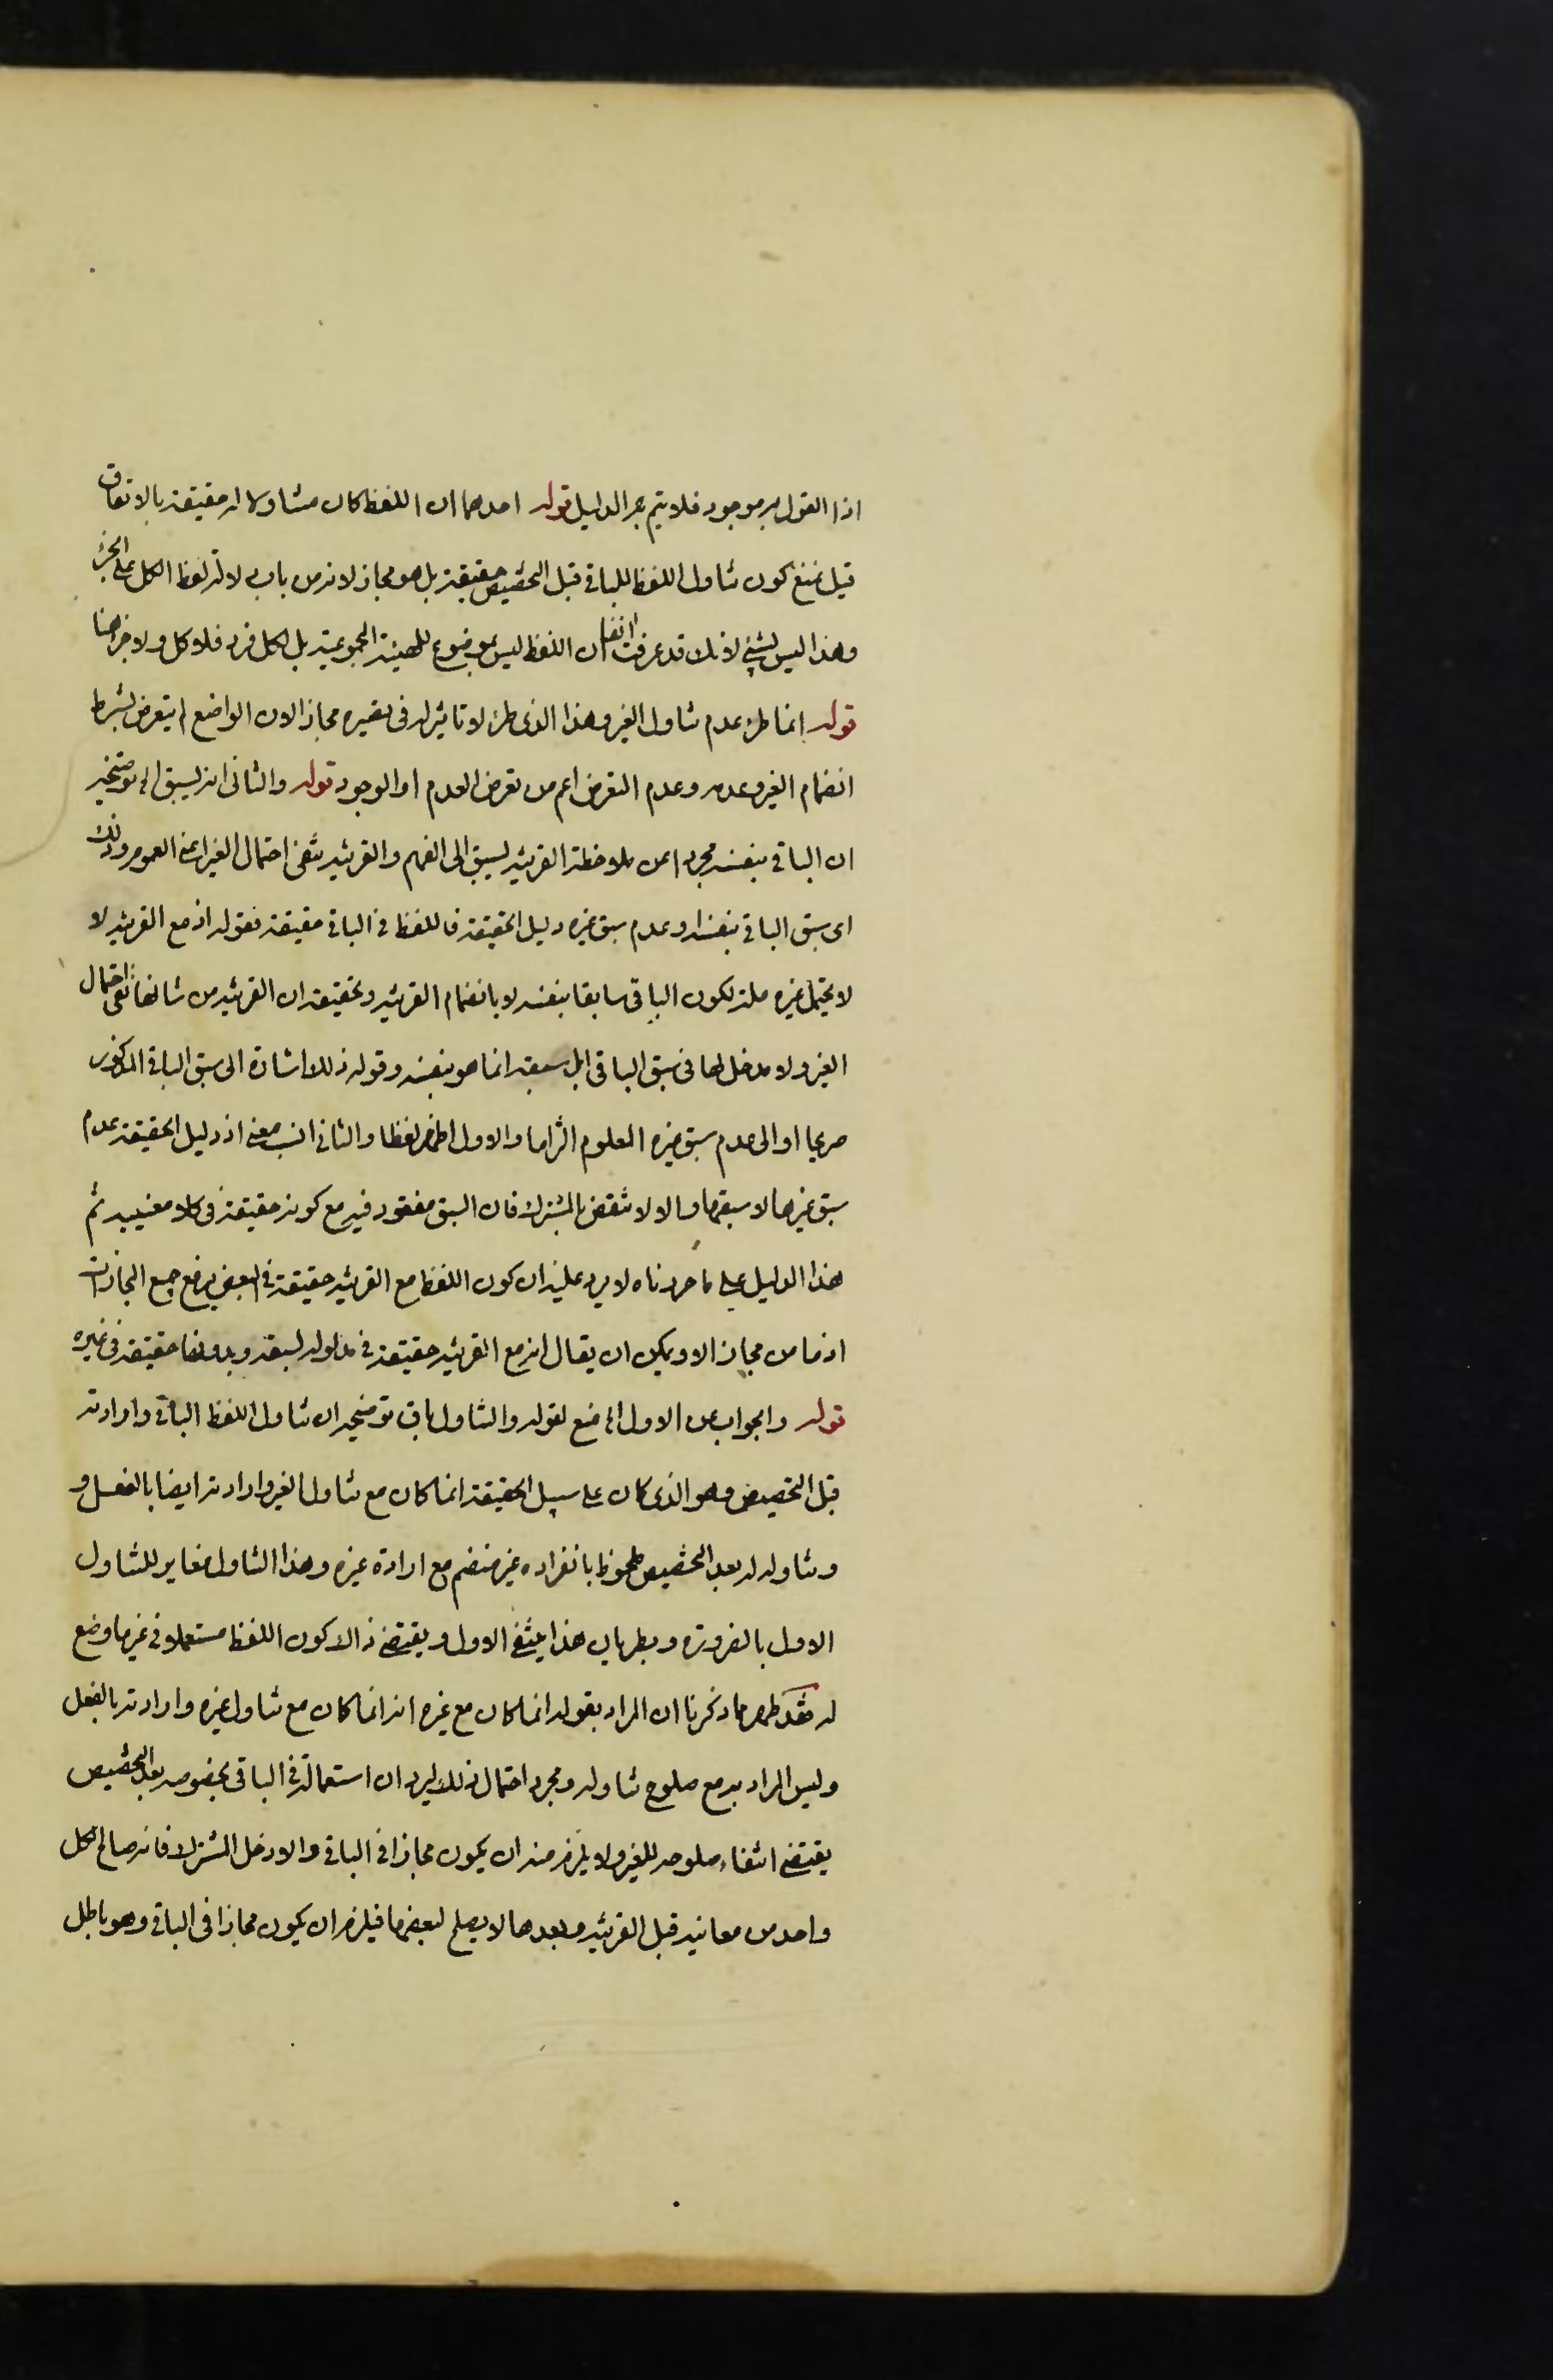 اذا القول به موجود فلا يتم به الدليل قوله احدهما ان اللفظ كان متناولا له حقيقة بالاتفاق
قيل نمنع كون تناول اللفظ للباقى قبل التخصيص حقيقة بل هو مجاز لانه من باب دلالة لفظ الكل على الجزء
وهذا ليس بشئ لانك قد عرفت انفا ان اللفظ ليس بموضوع للهيئة المجموعية بل لكل فرد فلا كل ولا جزء هنا
قوله انما طرء عدم تناول الغير وهذا الذى طرء لا تاثير له فى تغييره مجازا لان الواضع لم يتعرض لشرط
انضمام الغير وعدمه وعدم التعرض اعم من تعرض العدم او الوجود قوله والثانى انه يسبق الخ توضيحه
ان الباقى بنفسه مجردا عن ملاحظة القرينه يسبق الى الفهم والقرينه تنفى احتمال الغير اعنى العموم وذلك
اى سبق الباقى بنفسه او عدم سبق غيره دليل الحقيقة فاللفظ فى الباقى حقيقة فقوله اذ مع القرينه لا
لا يحتمل غيره علة لكون الباقى سابقا بنفسه لا بانضمام القرينه وتحقيقه ان القرينه من شانها نفى احتمال
الغير ولا مدخل لها فى سبق الباقى بل سبقه انما هو بنفسه وقوله ذلك اشارة الى سبق الباقى المذكور
صريحا او الى عدم سبق غيره المعلوم التزاما والاول اظهر لفظا والثانى انسب معنى اذ دليل الحقيقة عدم
سبق غيرها لا سبقها والا لانتقض بالمشترك فان السبق مفقود فيه مع كونه حقيقة فى كلا معنييه ثم
هذا الدليل على ما حررناه لا يرد عليه ان كون اللفظ مع القرينه حقيقة فى البعض يرفع جميع المجازات
اذ ما من مجاز الا ويمكن ان يقال انه مع القرينه حقيقة فى مدلوله لسبقه وبدونها حقيقة فى غيره
قوله والجواب عن الاول الخ منع لقوله والتناول باق توضيحه ان تناول اللفظ الباقى وارادته
قبل التخصيص وهو الذى كان على سبيل الحقيقة انما كان مع تناول الغير وارادته ايضا بالفعل و
وتناوله له بعد التخصيص ملحوظ بانفراده غير منضم مع ارادة غيره وهذا التناول مغاير للتناول
الاول بالضرورة وبطريان هذا ينتفى الاول ويقتضى ذلك كون اللفظ مستعملا فى غير ما وضع
له فقد ظهر مما ذكرنا ان المراد بقوله انما كان مع غيره انه انما كان مع تناول غيره وارادته بالفعل
وليس المراد به مع صلوح تناوله ومجرد احتمال ذلك ليرد ان استعماله فى الباقى بخصوصه بعد التخصيص
يقتضى انتفاء صلوحه للغير ولا يلزم منه ان يكون مجازا فى الباقى والا دخل المشترك فانه صالح لكل
واحد من معانيه قبل القرينه وبعدها لا يصلح لبعضها فيلزم ان يكون مجازا فى الباقى وهو باطل